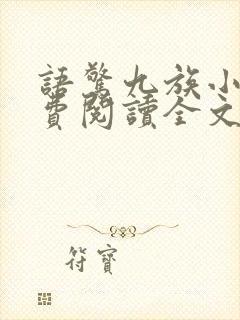 語驚九族小
費閱讀全文
符寶